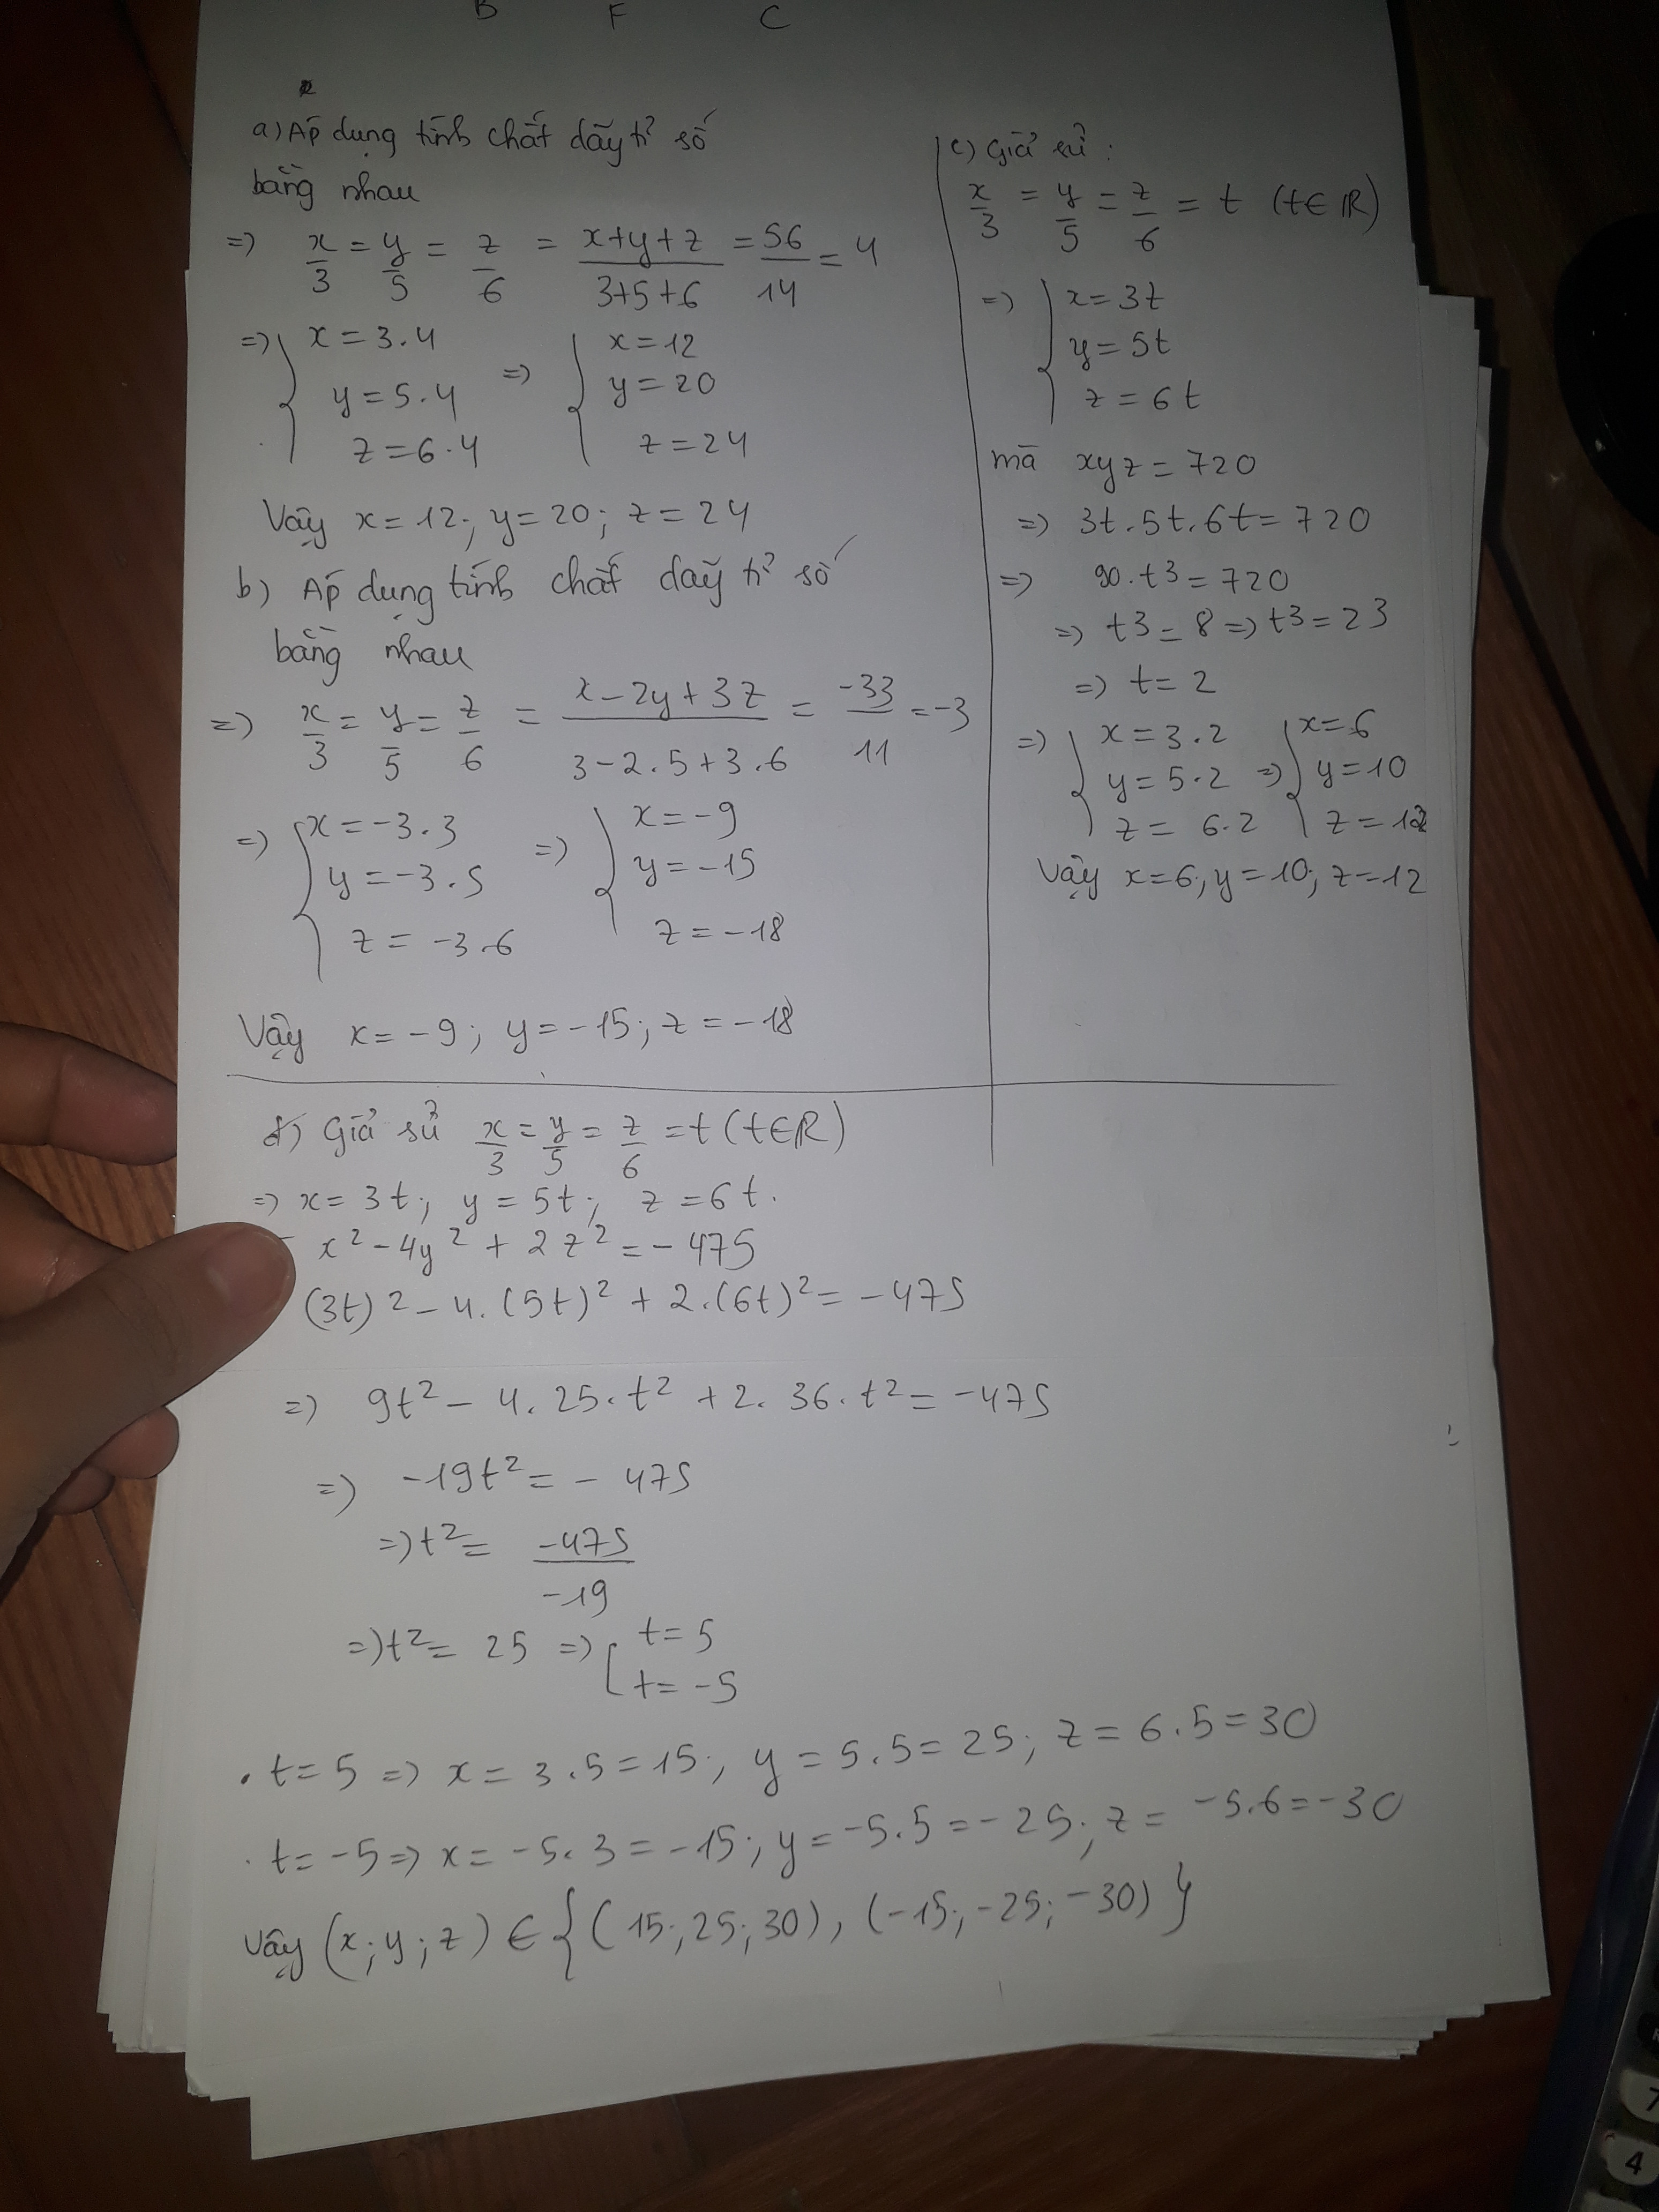 B F C
a) Áp dụng tính chất dãy tỉ số
bằng nhau
=> x/3 = y/5 = z/6 = x+y+z/3+5+6 = 56/14 = 4
=> { x = 3.4 => { x = 12
y = 5.4 y = 20
z = 6.4 z = 24
Vậy x = 12; y = 20; z = 24
b) Áp dụng tính chất dãy tỉ số
bằng nhau
=> x/3 = y/5 = z/6 = x-2y+3z/3-2.5+3.6 = -33/11 = -3
=> { x = -3.3 => { x = -9
y = -3.5 y = -15
z = -3.6 z = -18
Vậy x = -9; y = -15; z = -18
c) Giả sử:
x/3 = y/5 = z/6 = t (t∈R)
=> { x = 3t
y = 5t
z = 6t
mà xyz = 720
=> 3t.5t.6t = 720
=> 90.t3 = 720
=> t3 = 8 => t3 = 23
=> t = 2
=> { x = 3.2 => { x = 6
y = 5.2 y = 10
z = 6.2 z = 12
Vậy x=6; y=10; z=12
d) Giả sử x/3 = y/5 = z/6 = t (t∈R)
=> x = 3t; y = 5t; z = 6t.
x² - 4y² + 2z² = -475
(3t)² - 4.(5t)² + 2.(6t)² = -475
=> 9t² - 4.25.t² + 2.36.t² = -475
=> -19t² = -475
=> t² = -475/-19
=> t² = 25 => [ t = 5
t = -5
. t = 5 => x = 3.5 = 15; y = 5.5 = 25; z = 6.5 = 30
. t = -5 => x = -5.3 = -15; y = -5.5 = -25; z = -5.6 = -30
Vậy (x;y;z) ∈ {(15;25;30), (-15;-25;-30)}
7
4